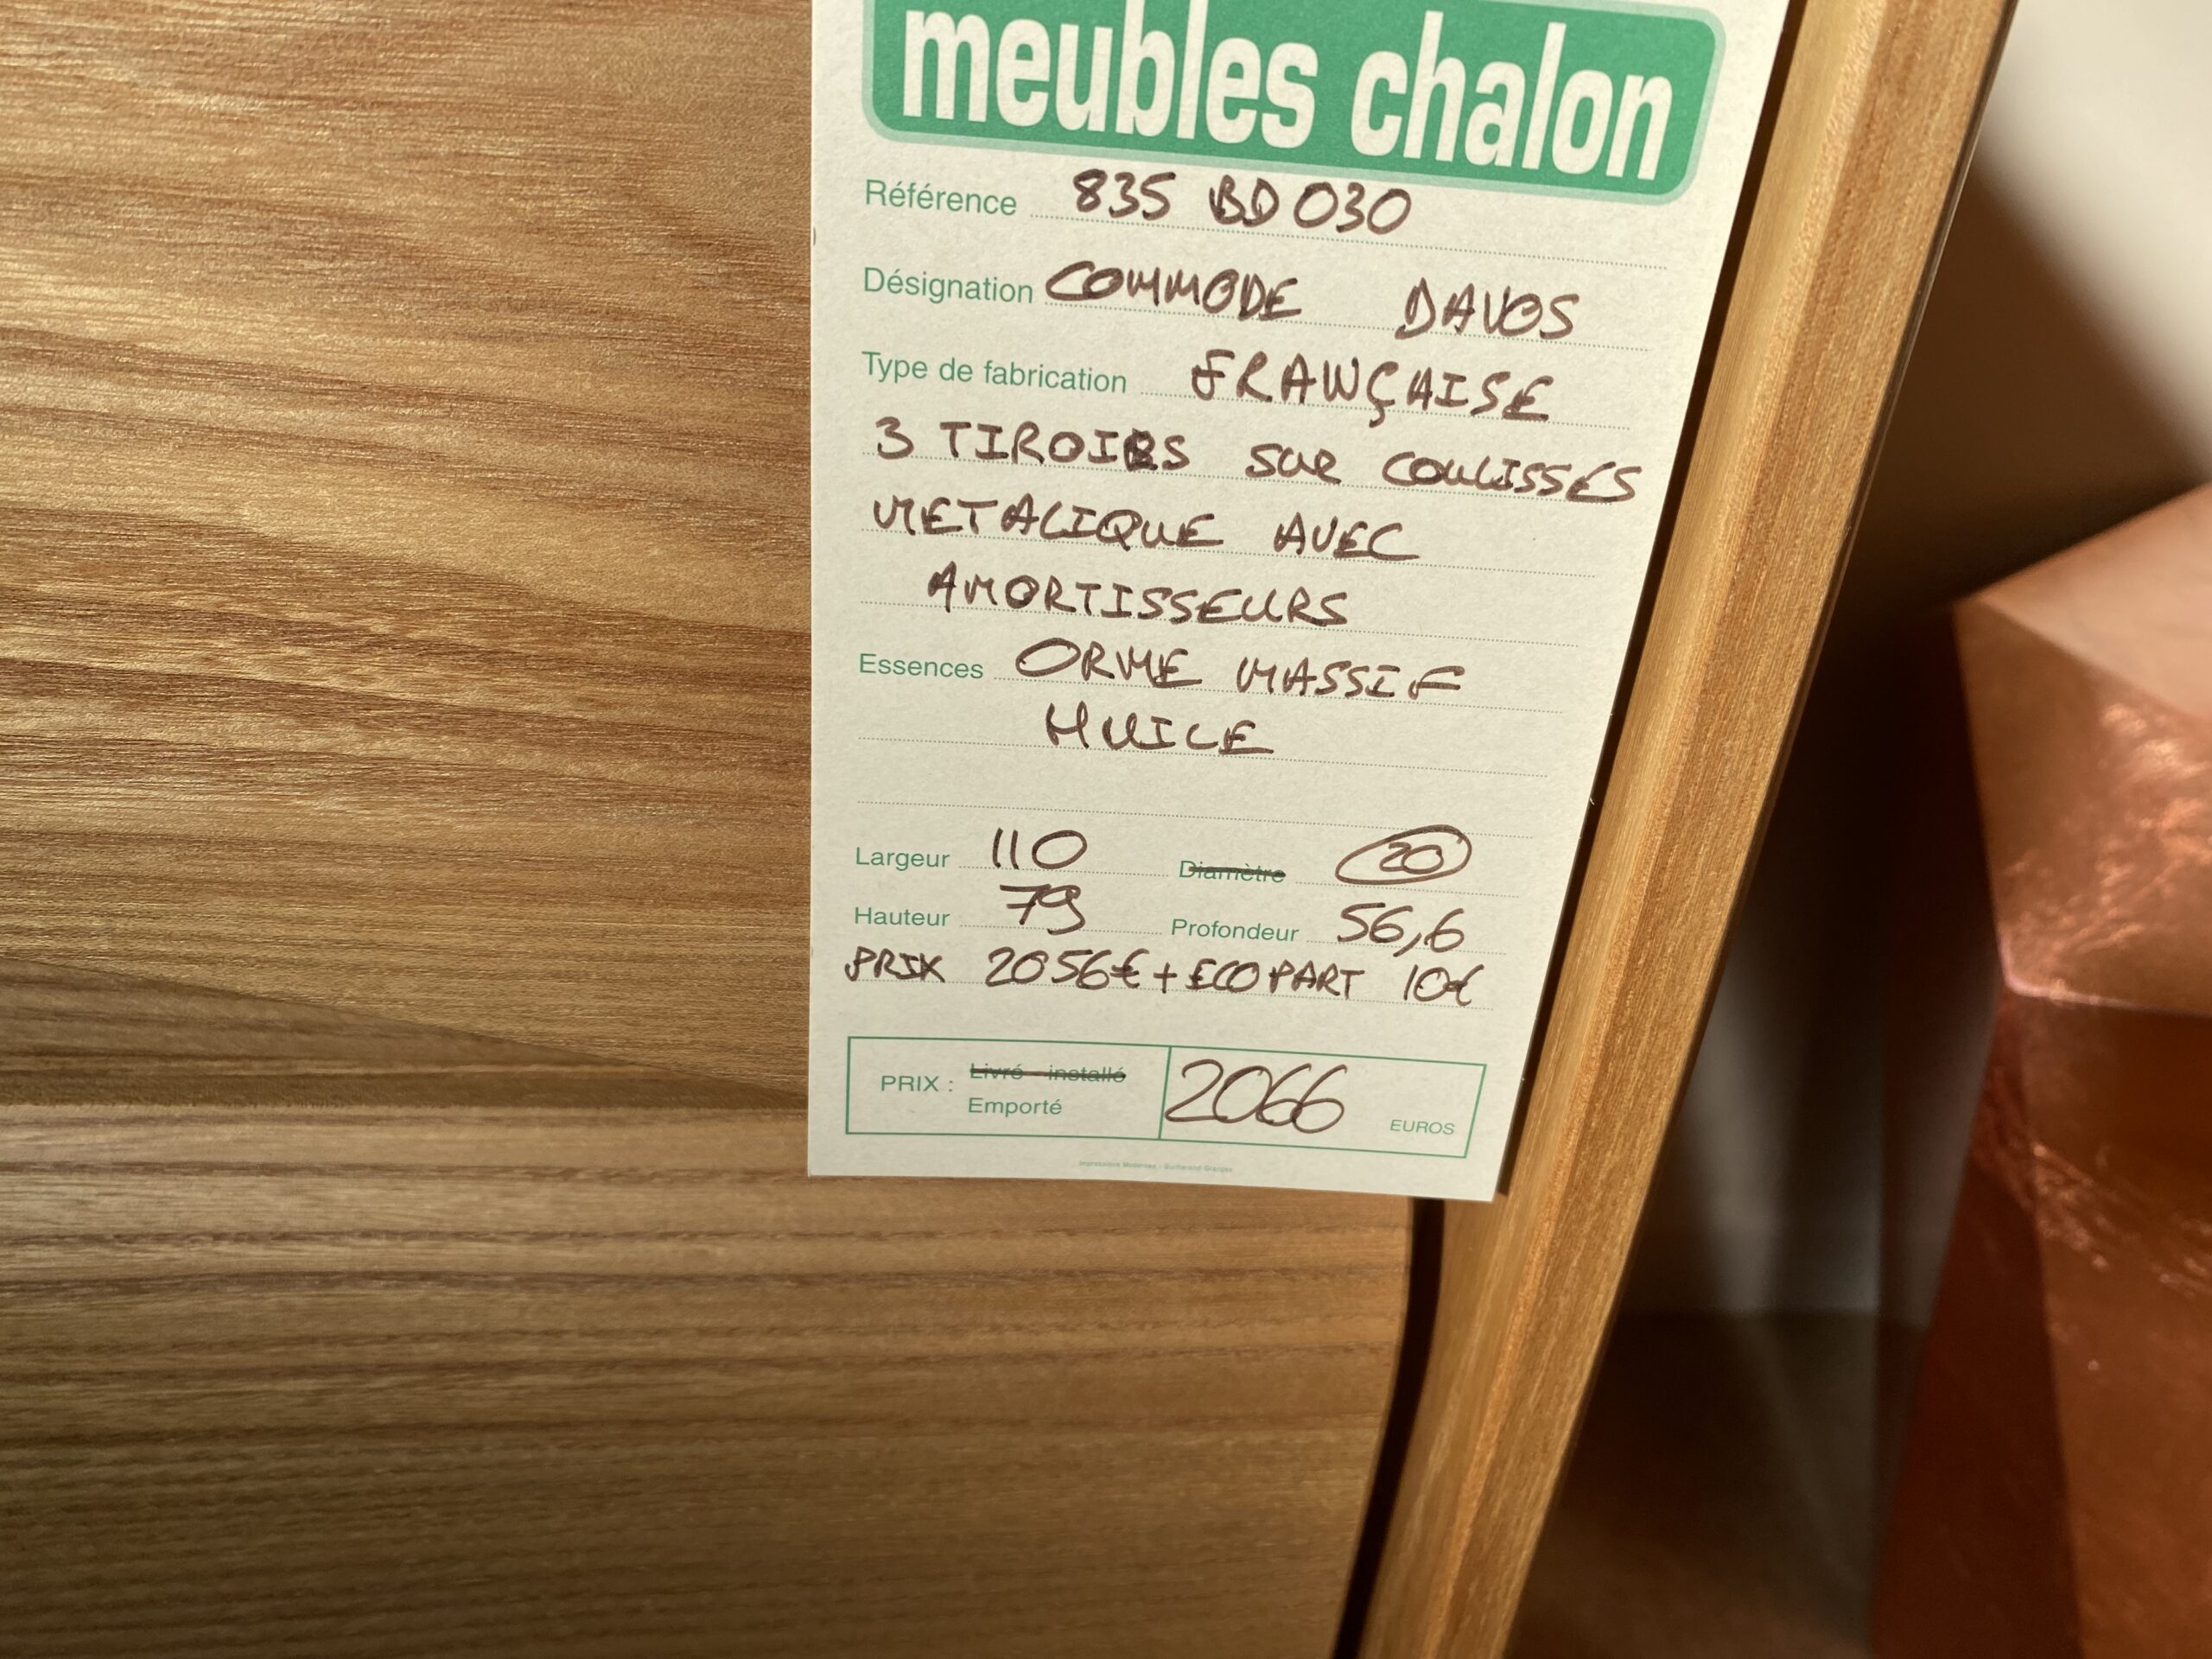 meubles chalon
Référence 835 BD 030
Désignation COMMODE DAVOS
Type de fabrication FRANÇAISE
3 TIROIRS SUR COULISSES
METALIQUE AVEC
AMORTISSEURS
Essences ORME MASSIF
HUILE
Largeur 110 Diamètre 20
Hauteur 79 Profondeur 56,6
PRIX 2056€ + ECOPART 10€
PRIX : Livré - installé
Emporté 2066 EUROS
Impressions Modernes - Guilherand Granges